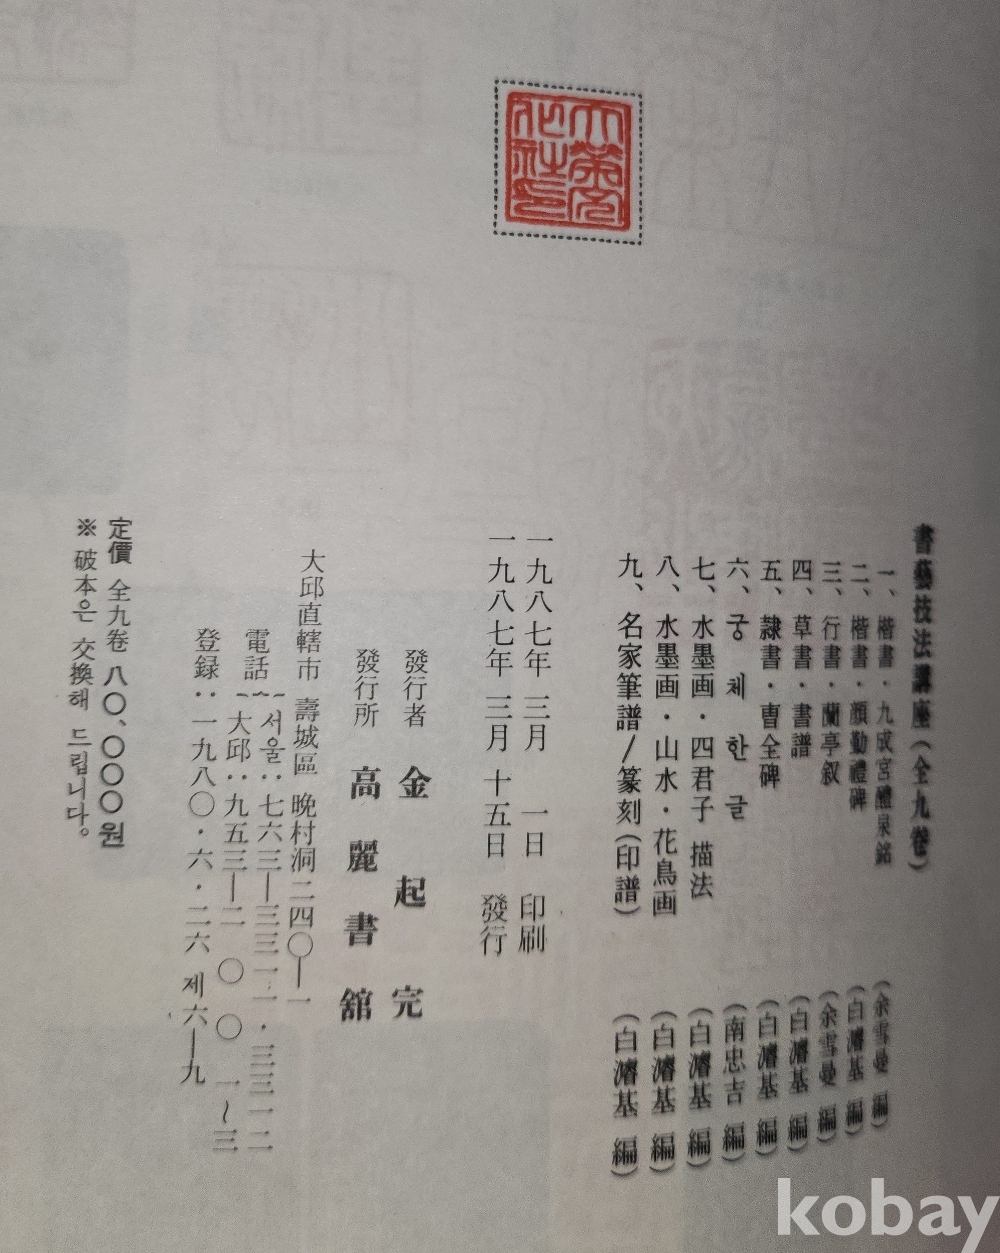 書藝技法講座(全九卷)
一、楷書·九成宮醴泉銘 (余雪曼 編)
二、楷書·顔勤禮碑 (白濬基 編)
三、行書·蘭亭叙 (余雪曼 編)
四、草書·書譜 (白濬基 編)
五、隷書·曹全碑 (白濬基 編)
六、궁체한글 (南忠吉 編)
七、水墨画·四君子 描法 (白濬基 編)
八、水墨画·山水·花鳥画 (白濬基 編)
九、名家筆譜/篆刻(印譜) (白濬基 編)
一九八七年 三月 一日 印刷
一九八七年 三月 十五日 發行
發行者 金起完
發行所 高麗書舘
大邱直轄市 壽城區 晩村洞 二四〇—一
電話 서울:七六三—三三一一·三三一二
大邱:九五三—二〇〇一~三
登録:一九八〇·六·二六 제六—九
定價 全九卷 八〇、〇〇〇원
※ 破本은 交換해 드립니다。
kobay